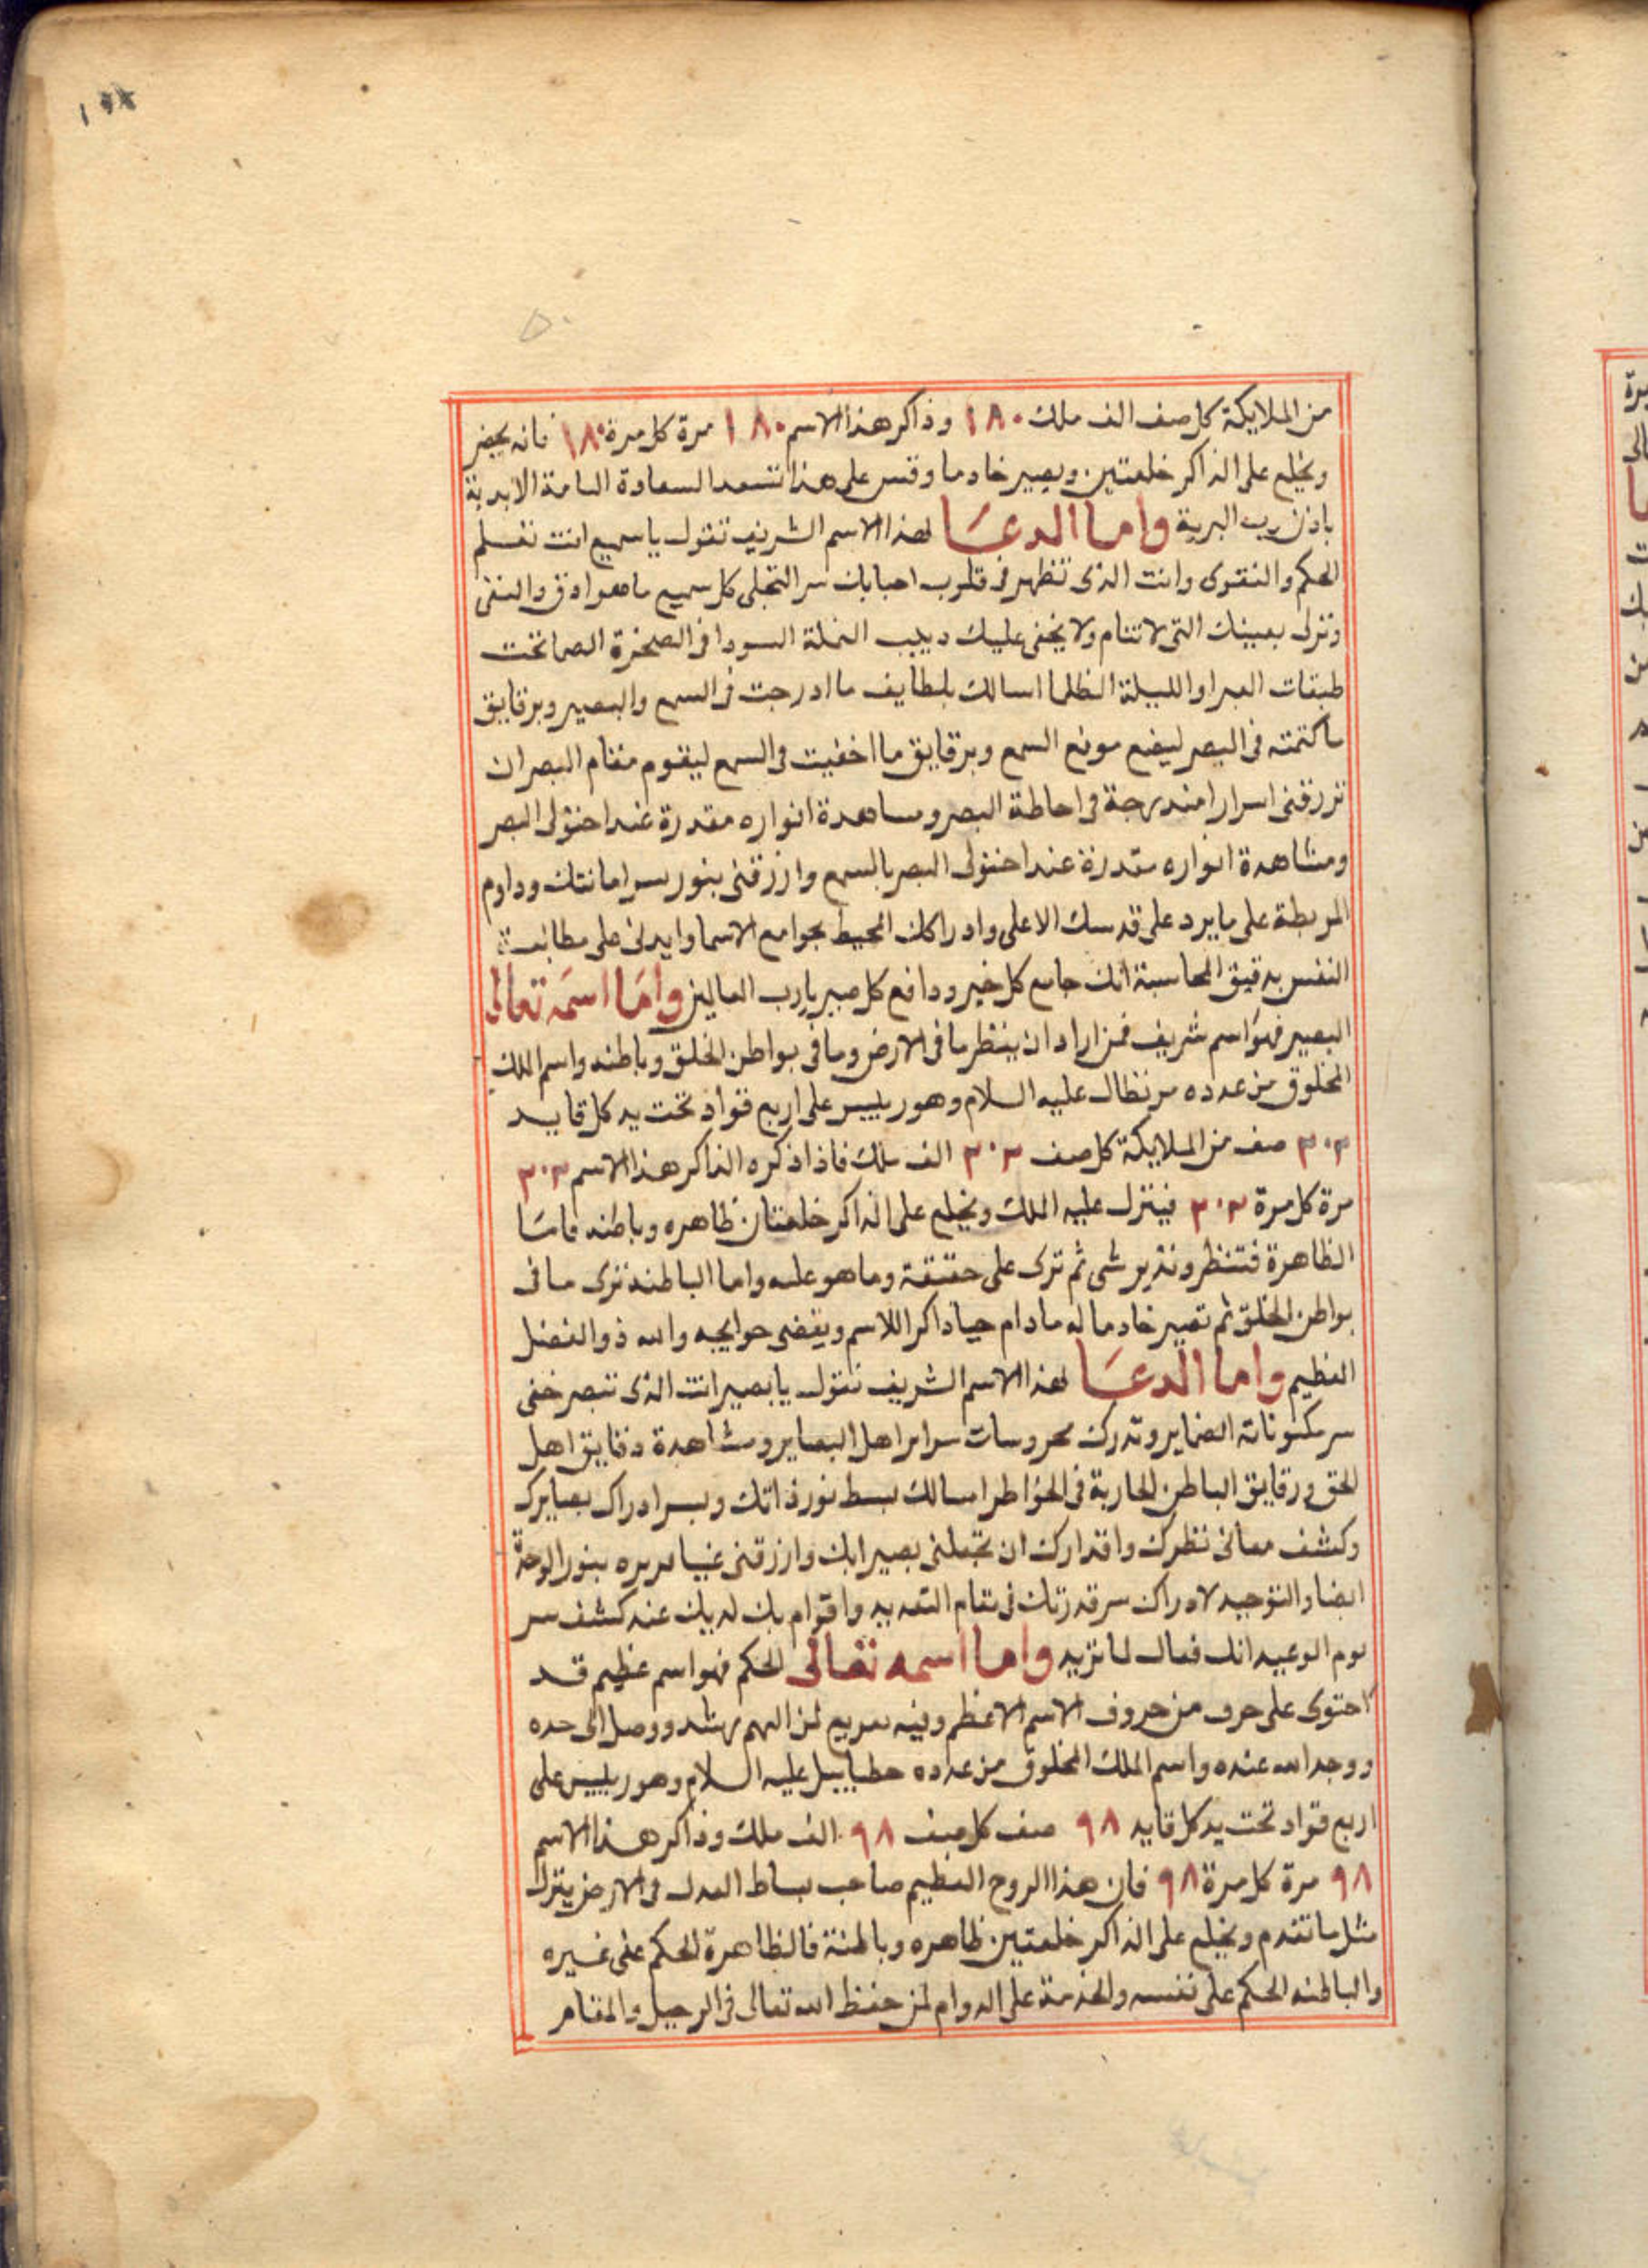 من الملايكة كل صف الف ملك ١٨٠ وذاكر هذا الاسم ١٨٠ مرة كل مرة ١٨٠ فانه يحضر
ويخلع على الذاكر خلعتين ويصير خادما وقس على هذا تسعد السعادة التامة الابدية
باذن رب البرية واما الدعا لهذا الاسم الشريف تقول ياسميع انت تعلم
الحكم والنقوى وانت الذى تظهر فى قلوب احبابك سر التجلى كل سميع ما هو ادق والنفى
وتزل بعينك التى لا تنام ولا يخفى عليك دبيب النملة السودا فى الصخرة الصما تحت
طبقات الغبرا والليلة الظلما اسالك بلطايف ما ادرجت فى السمع والبصير وبرقايق
ماكتمته فى البصر ليضع موضع السمع وبرقايق ما اخفيت فى السمع ليقوم مقام البصر ان
ترزقنى اسرارا مندرجة فى احاطة البصر ومساهدة انواره مقدرة عند احتولى البصر
ومشاهدة انواره عند احتولى البصر بالسمع وارزقنى بنور سر امانتك وداوم
المربطة على ما يرد على قدسك الاعلى وادراكك المحيط بجوامع الاسما وايدنى على مطالبة
النفس بدقيق المحاسبة انك جامع كل خير ودافع كل يارب العالمين واما اسمه تعالى
البصير فهو اسم شريف فمن اراد ان ينظر ما فى الارض وما فى بواطن الخلق وباطنه واسم الملك
المخلوق من عدده عليه السلام وهو رييس على اربع قواد تحت يد كل قايد
٣٠٢ صف من الملايكة كل صف ٣٠٢ الف ملك فاذا ذكره الذاكر هذا الاسم ٣٠٢
مرة كل مرة ٣٠٢ فينزل عليه الملك ويخلع على الذاكر خلعتان ظاهره وباطنه فاما
الظاهرة فتنظر شى ثم ترى على حقيقة وما هو عليه واما الباطنه ترى ما فى
بواطن الخلق ثم تصير خادما له مادام حيا ذاكرا للاسم ويقضى حوايجه والله ذو الفضل
العظيم واما الدعا لهذا الاسم الشريف تقول يابصير انت الذى تبصر خفى
سر مكنونات الضماير وتدرك محروسات سراير اهل البصاير ومشاهدة دقايق اهل
الحق ورقايق الباطن الجارية فى الخواطر اسالك ببسط نور ذاتك وبسر ادراك بصايرك
وكشف معانى نظرك واقتدارك ان تجعلنى بصيرا بك وارزقنى بنور الوحدة
ايضا والتوحيد لادراك سر قدرتك فى مقام واقوام بك لديك عند كشف سر
يوم الوعيد انك فعال لما تريد واما اسمه تعالى الحكم فهو اسم عظيم قد
احتوى على حرف من حروف الاسم الاعظم وفيه سريع لمن الهم رشد ووصل الى حده
ووجد الله عنده واسم الملك المخلوق من عدده حطياييل عليه السلام وهو رييس على
اربع قواد تحت يد كل قايد ٩٨ صف كل صف ٩٨ الف ملك وذاكر هذا الاسم
٩٨ مرة كل مرة ٩٨ فان هذا الروح العظيم صاحب بساط العدل فى الارض ينزل
مثل ما تقدم ويخلع على الذاكر خلعتين ظاهره وباطنة فالظاهرة الحكم على غيره
والباطنه الحكم على نفسه والخدمة على الدوام لمن حفظ الله تعالى فى الرحيل والمقام